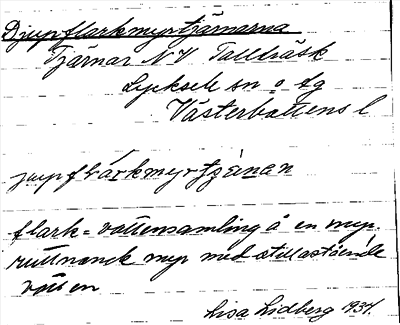 Djupflarkmyrtjärnarna
Tjärnar NV Tallträsk
Lycksele sn o lg
Västerbottens l
jupflárkmyrtjä̀nan
flark = vattensamling å en myr.
myr med stillastående
vatten
Lisa Lidberg 1934.